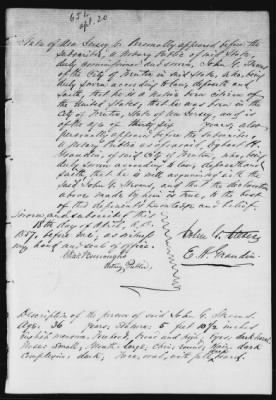 656
apl. 20
State of New Jersey, ss. Personally appeared before the
subscriber, a Notary Public of said State,
duly commissioned and sworn, John G.
of the City of Trenton in said State, who, being
duly sworn according to law, deposeth and
saith, that he is a native born citizen of
the United States; that he was born in the
City of Trenton State of New Jersey, and is
of the age of thirty six years. also
personally appeared before the subscriber
a Notary Public as aforesaid,
of said City of Trenton, who, being
duly sworn according to law, deposeth and
saith, that he is well acquainted with the
said John G. and that the declaration
above made by him is true, to the best
of this deponent's knowledge and belief.
Sworn and subscribed this
18th day of April, A.D.
1857, before me, as witness
my hand and seal of office.
Notary Public.
John G.
E. H.
Description of the person of said John G.
Age, 36 years; Stature: 5 feet 10½ inches
English measure; Forehead, and high; Eyes: dark hazel;
Nose: Small; Mouth: large; Chin: round; Hair: dark
Complexion: dark; Face: oval, with full beard.